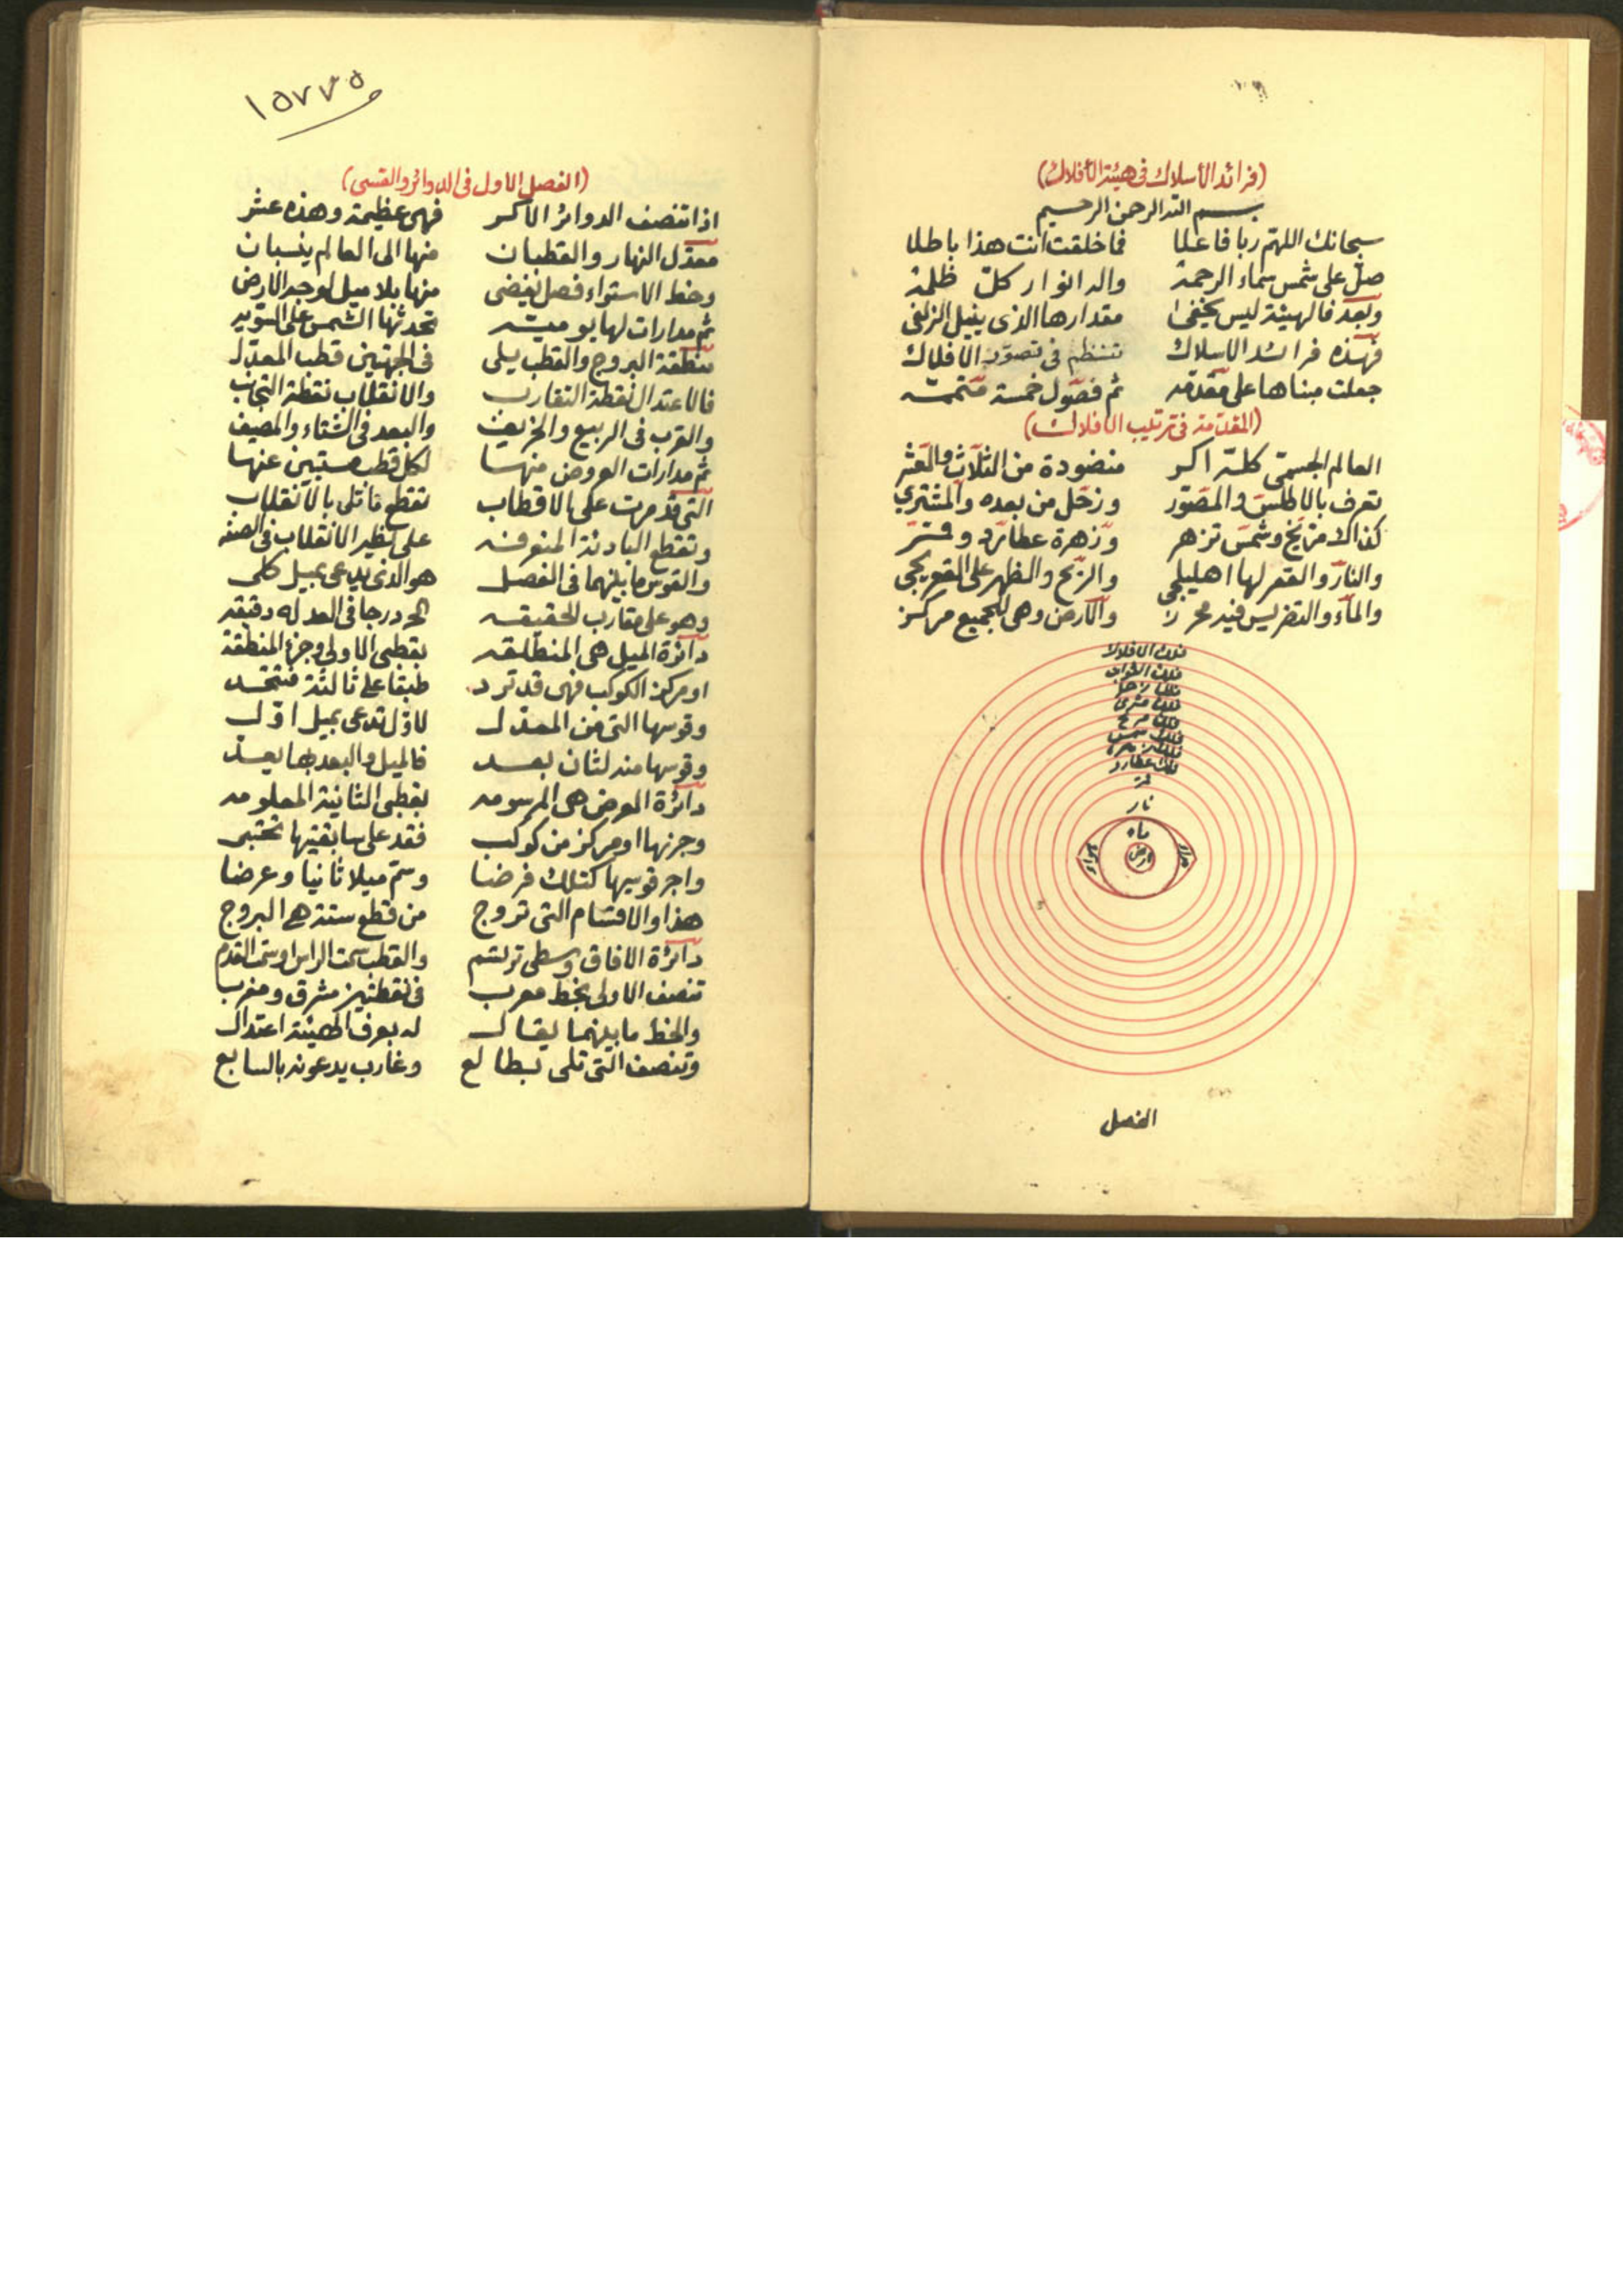 (فرائد الأسلاك في هيئة الأفلاك)
بسم الله الرحمن الرحيم
سبحانك اللهم ربا فاعلا فما خلقت انت هذا باطلا
صل على شمس سماء الرحمة واله انوار كل ظلمة
وبعد فالهيئة ليس يختفى مقدارها الذى ينيل الزلفى
فهذه فرائد الاسلاك تنتظم فى تصور الافلاك
جعلت مبناها على مقدمه ثم فصول خمسة متممه
(المقدمة فى ترتيب الافلاك)
العالم الجسمى كله اكر منضودة من الثلاث والعشر
تعرف بالاطلس والمصور وزحل من بعده والمشتري
كذاك مريخ وشمس تزهر وزهرة عطارد وقمر
والنار والقعر لها اهليلجى والريح والظهر على القعر يجى
والماء والتضريس فيه محرز والارض وهى للجميع مركز
فلك الافلاك
فلك الثوابت
فلك زحل
فلك مشترى
فلك مريخ
فلك شمس
فلك زهره
فلك عطارد
قمر
نار
ماء
هواء
ارض
هواء
الفصل
١٥٧٧٥
(الفصل الاول فى الدوائر والقسى)
اذا تنصف الدوائر الاكر فهى عظيمة وهذه عشر
معدل النهار والقطبان منها الى العالم ينسبان
وخط الاستواء فصل نقضى منها بلا ميل لوجه الارض
ثم مدارات لها يوميه تحدثها الشمس على
منطقة البروج والقطب يلى فى الجهتين قطب المعدل
فالاعتدال نقطة التقارب والانقلاب نقطة التجانب
والقرب فى الربيع والخريف والبعد فى الشتاء والمصيف
ثم مدارات العروض منها لكل قطب عنها
التى قد مرت على الاقطاب تقطع ما تلى بالانقلاب
وتقطع البادئة على نظير الانقلاب فى الصفه
والقوس ما بينهما فى الفصل هو الذى يدعى بميل كلى
وهو على مقارب الحقيقه درجا فى العد له دقيقه
دائرة الميل هى المنطلقه بقطبى الاولى وجزء المنطقة
او مركز الكوكب فهى قد ترد طبقا على ثالثة فتتحد
وقوسها التى من المعدل لاول تدعى بميل اول
وقوسها منه لثان بعد فالميل والبعد بها يعد
دائرة العرض هى المرسومه بقطبى الثانية المعلومه
وجزئها او مركز من كوكب فقد على سابقتيها تحتبى
واجر قوسيها كتلك فرضا وسم ميلا ثانيا وعرضا
هذا والاقسام التى تروج من قطع ستة هى البروج
دائرة الافاق وسطى ترتسم والقطب سمت الراس او سمت القدم
تنصف الاولى بخط معرب فى نقطتين مشرق ومغرب
والخط ما بينهما يقال له بعرف الهيئة اعتدال
وتنصف التى تلى بطالع وغارب يدعونه بالسابع